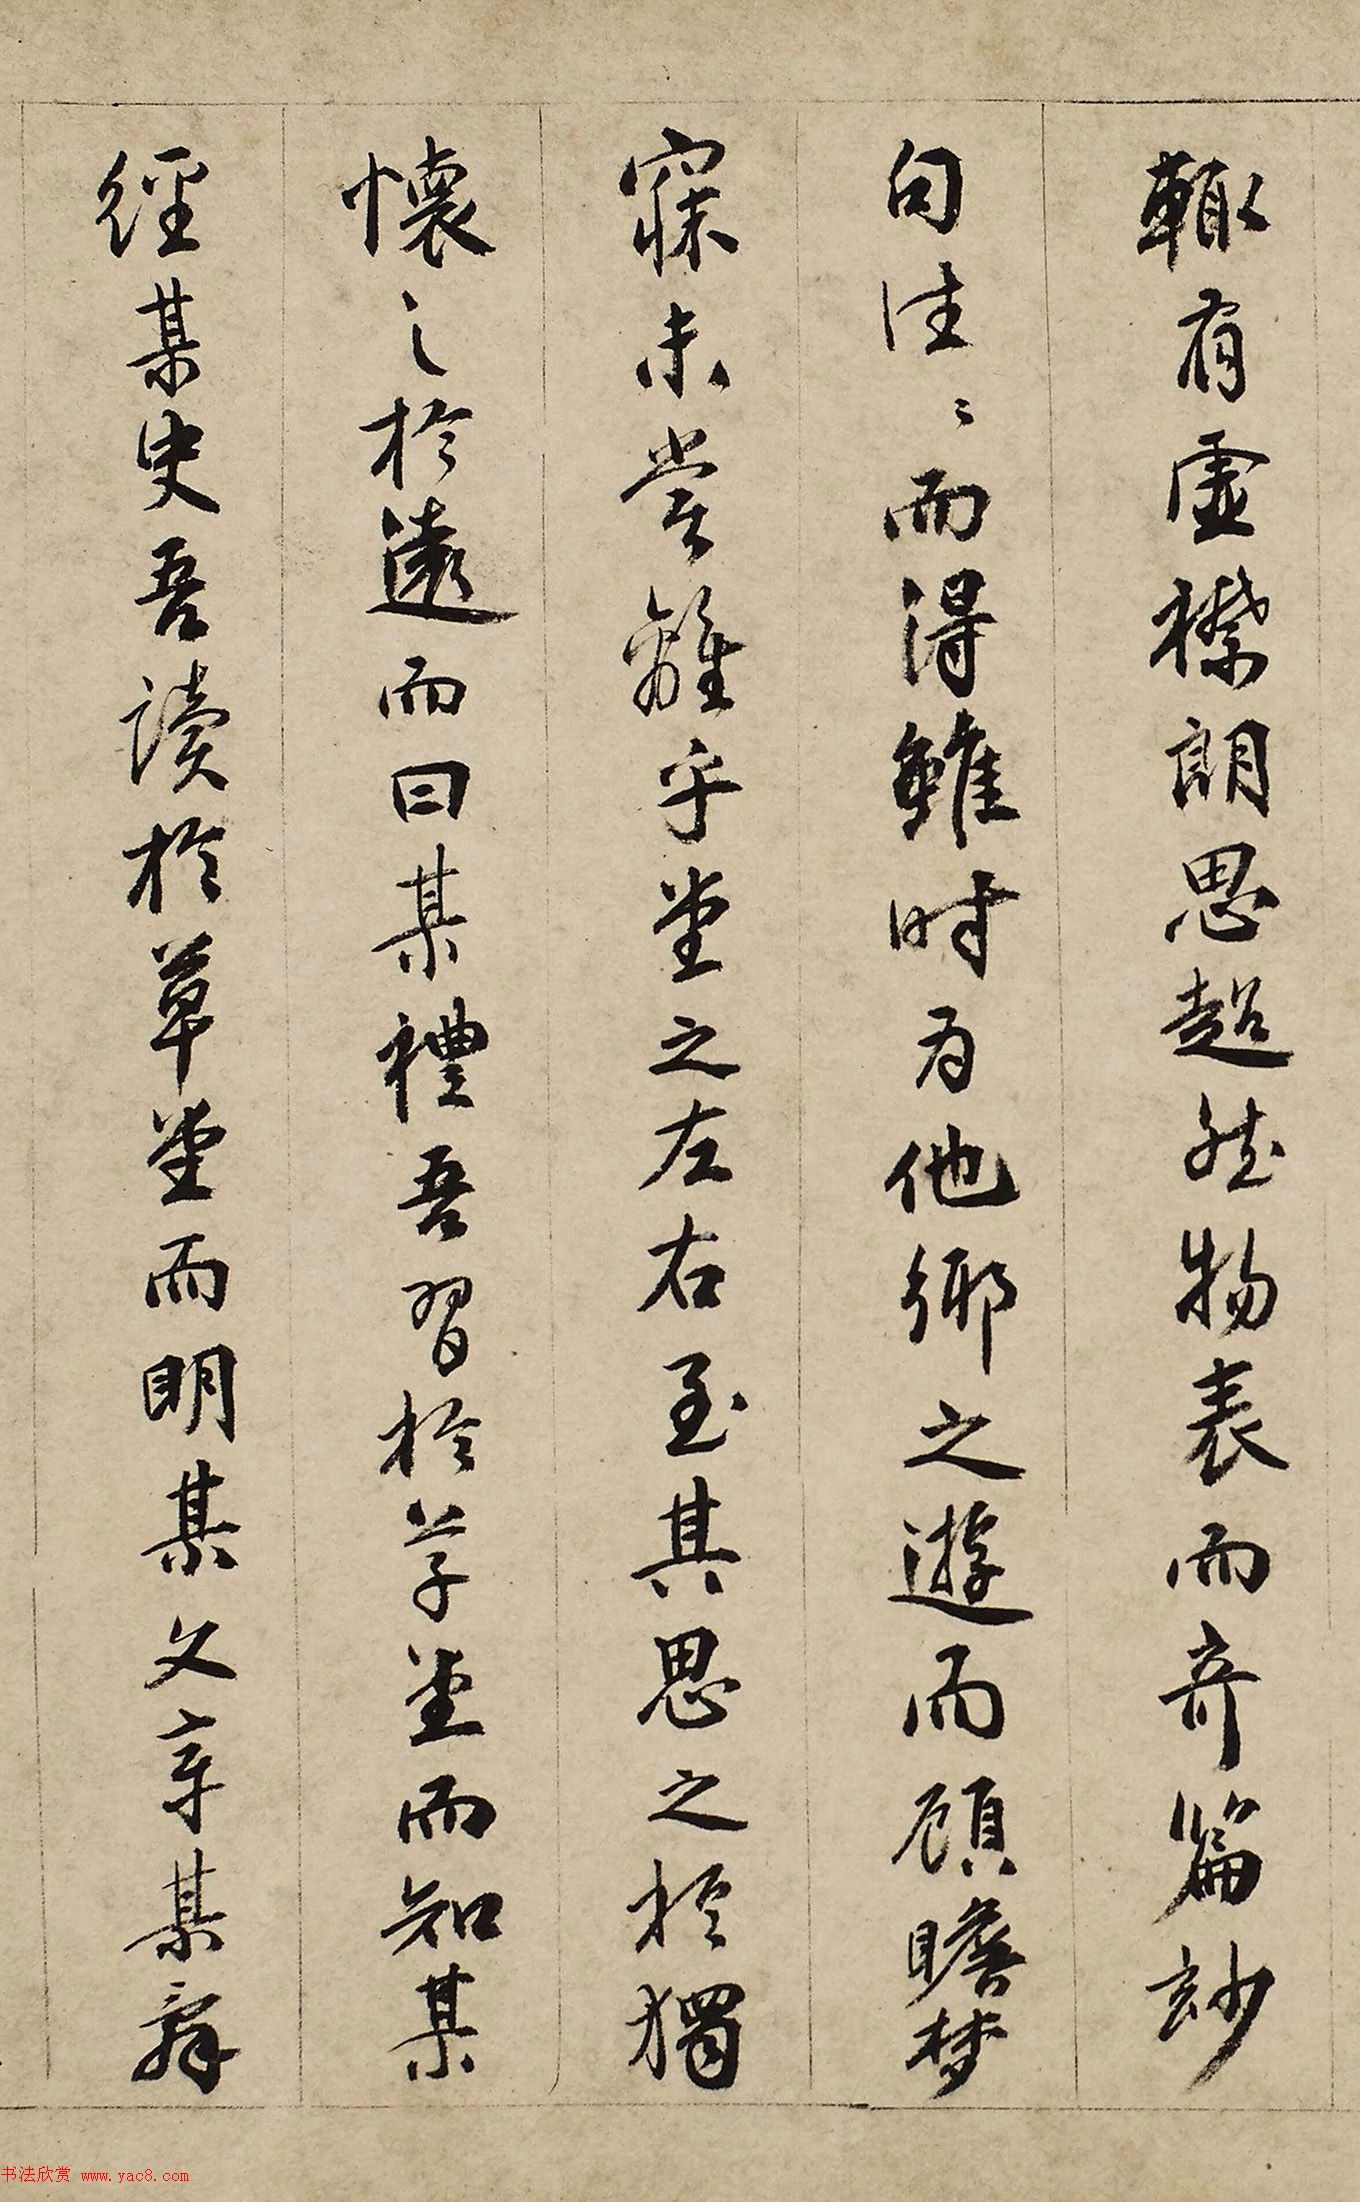 輙有虛襟朗思超然物表而奇篇玅
句往〻而得雖时为他鄉之遊而顧瞻梦
寐未嘗離乎堂之左右至其思之於獨
懷之於遠而曰某禮吾習於草堂而知某
經某史吾讀於草堂而明某文章某辭
书法欣赏 www.yac8.com